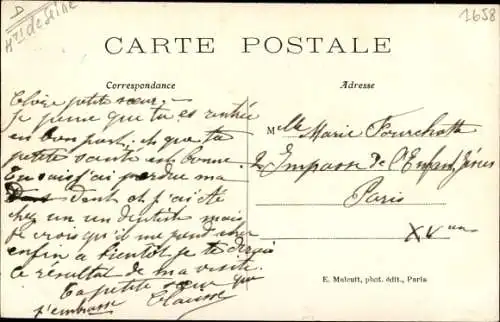 Hte de Seine
1658
CARTE POSTALE
Correspondance
Adresse
Chère petite sœur,
Je pense que tu es rentrée
en bon port, et que ta
petite santé est bonne.
Tu sais j'ai perdue ma
dent et j'ai été
chez un dentiste mais
je crois qu'il me
enfin a bientôt je te dirai
le résultat de ma visite.
Ta petite sœur qui
t'embrasse
Mlle Marie Fourchotte
Impasse de l'Enfant Jésus
Paris
XVme
E. Malcuit, phot. édit., Paris